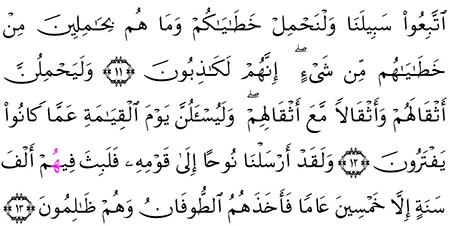 ٱتَّبِعُوا۟ سَبِيلَنَا وَلْنَحْمِلْ خَطَـٰيَـٰكُمْ وَمَا هُم بِحَـٰمِلِينَ مِنْ
خَطَـٰيَـٰهُم مِّن شَىْءٍ ۖ إِنَّهُمْ لَكَـٰذِبُونَ ١١ وَلَيَحْمِلُنَّ
أَثْقَالَهُمْ وَأَثْقَالًا مَّعَ أَثْقَالِهِمْ ۖ وَلَيُسْـَٔلُنَّ يَوْمَ ٱلْقِيَـٰمَةِ عَمَّا كَانُوا۟
يَفْتَرُونَ ١٢ وَلَقَدْ أَرْسَلْنَا نُوحًا إِلَىٰ قَوْمِهِۦ فَلَبِثَ فِيهُمْ أَلْفَ
سَنَةٍ إِلَّا خَمْسِينَ عَامًا فَأَخَذَهُمُ ٱلطُّوفَانُ وَهُمْ ظَـٰلِمُونَ ١٣